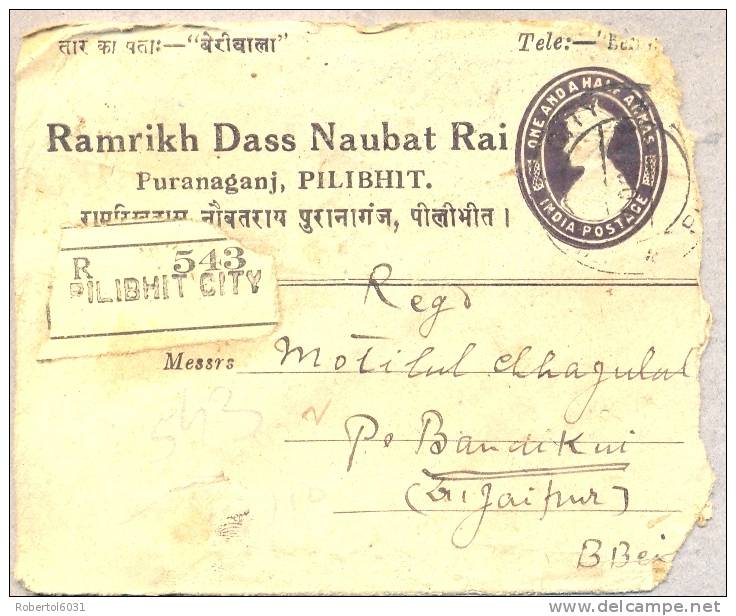 तार का पताः—"बेरीवाला"
Tele:—"
ONE AND A HALF ANNAS
INDIA POSTAGE
CITY
Ramrikh Dass Naubat Rai
Puranaganj, PILIBHIT.
रामरिखदास नौबतराय पुरानागंज, पीलीभीत।
R 543
PILIBHIT CITY
Regd
Messrs Motilal Chhagulal
543
Po Bandikui
Jaipur)
Robertol6031
delcampe.net